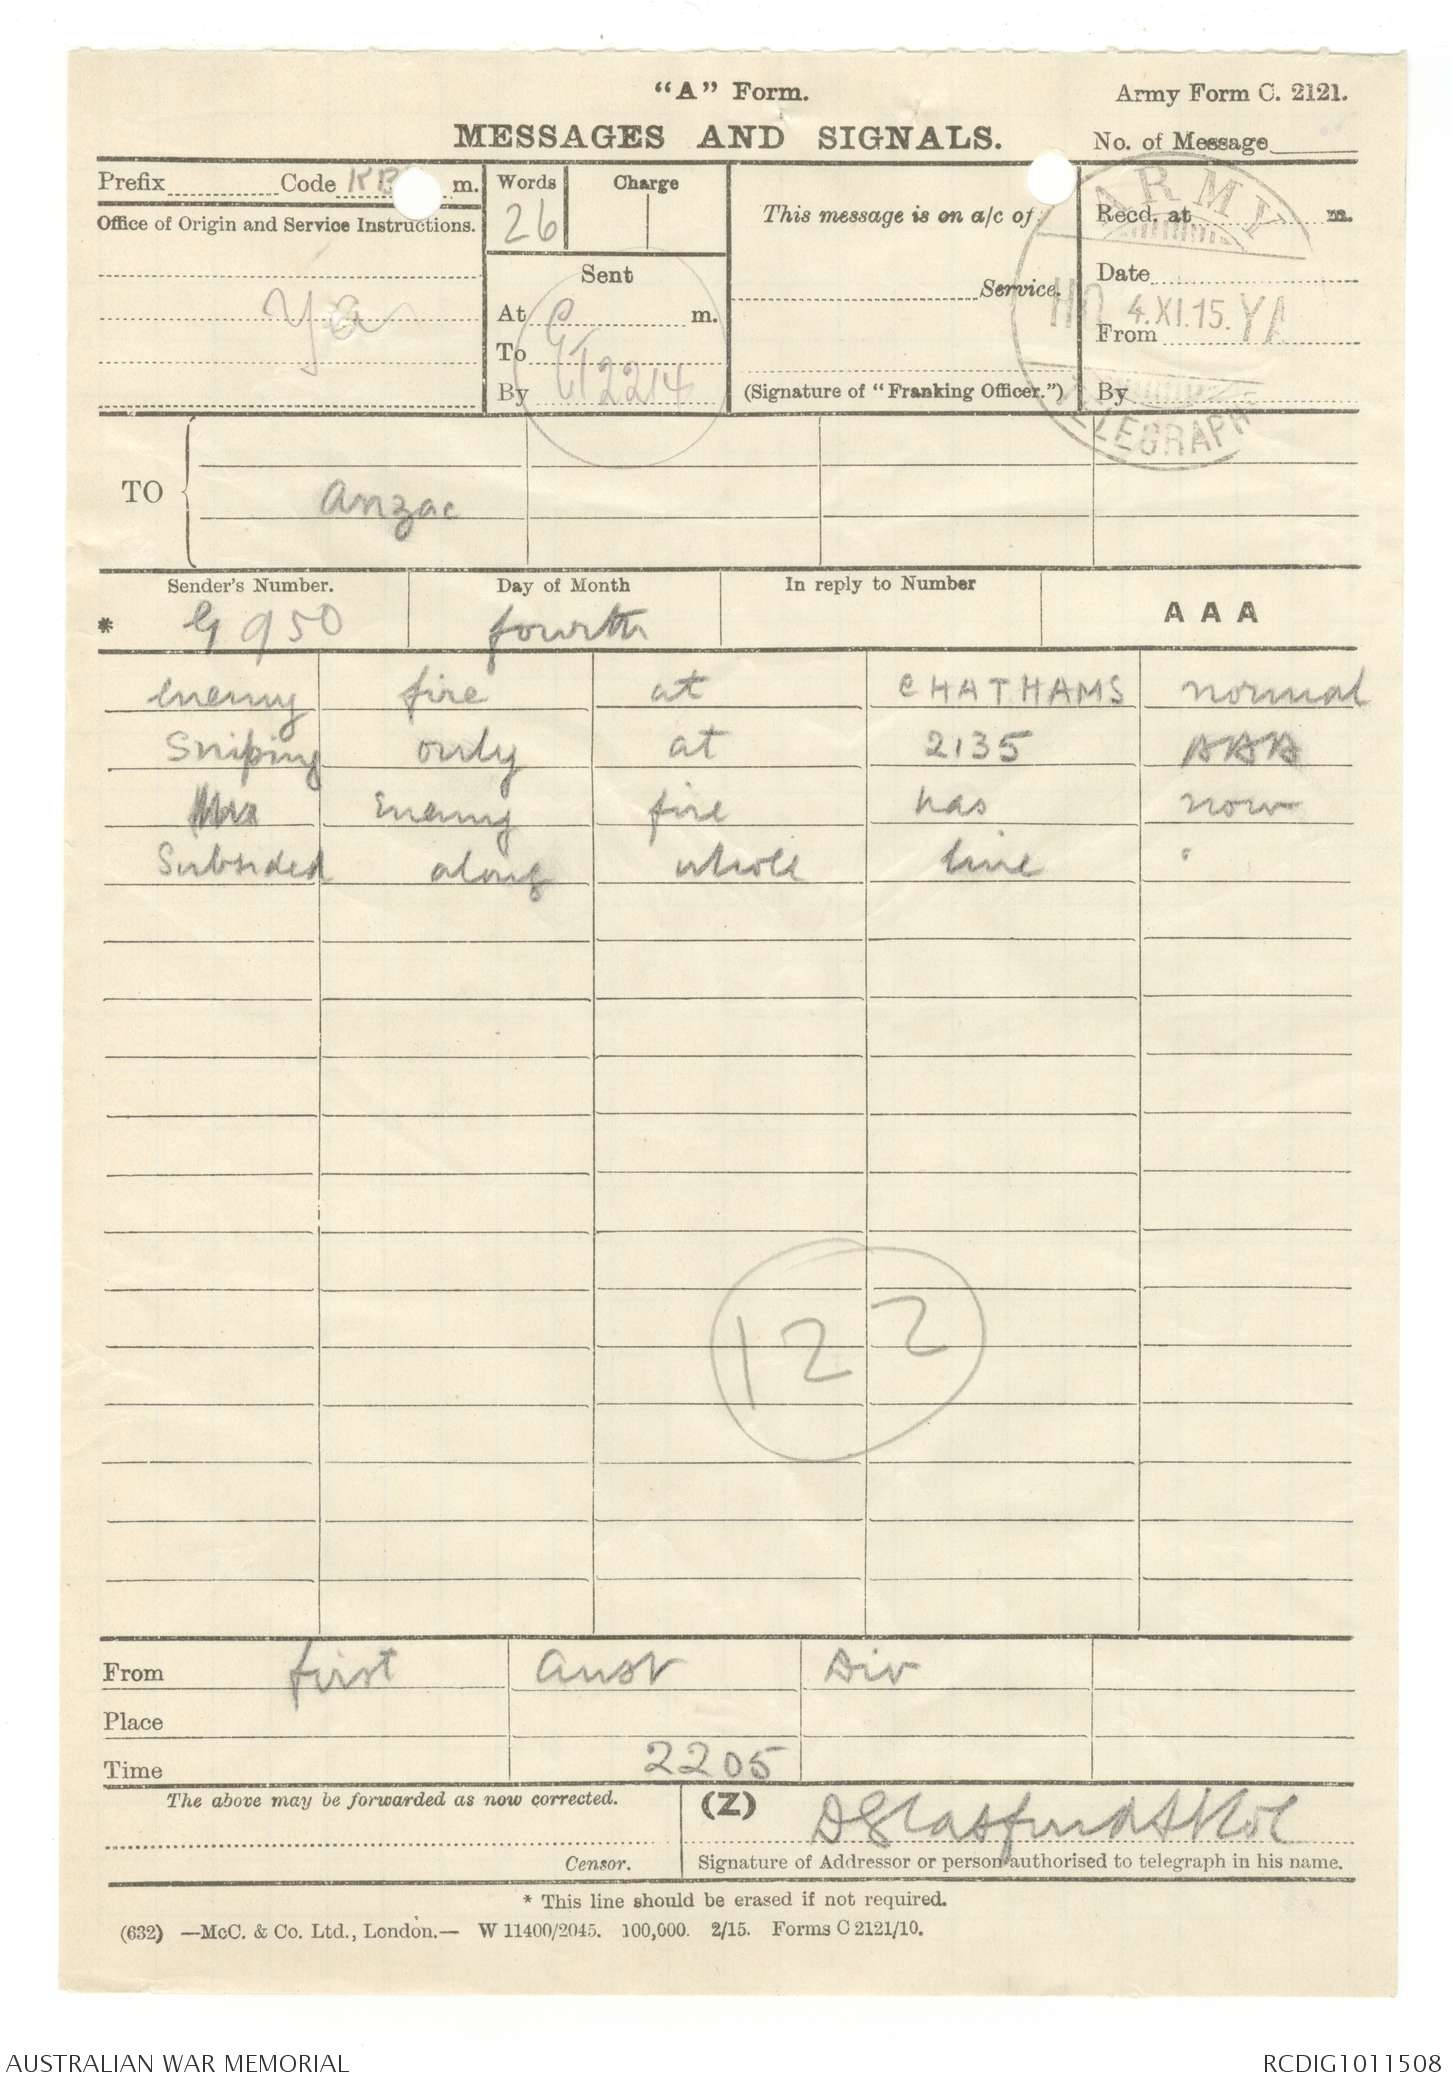 "A" Form.
Army Form C. 2121.
MESSAGES AND SIGNALS.
No. of Message
Prefix Code m.
Words
Charge
This message is on a/c of:
Recd. at m.
26
Office of Origin and Service Instructions.
Sent
Service.
Date
Ya
At m.
From
To
By 2214
(Signature of "Franking Officer.")
By
ARMY
HQ 4.XI.15. YA
TELEGRAPH
TO
Anzac
Sender's Number.
Day of Month
In reply to Number
AAA
* G 950
fourth
enemy fire at CHATHAMS normal
Sniping only at 2135 AAA
Enemy fire has now
Subsided along whole line
122
From first Aust Div
Place
Time 2205
The above may be forwarded as now corrected.
(Z)
D Glasfurd
Censor.
Signature of Addressor or person authorised to telegraph in his name.
* This line should be erased if not required.
(632) —McC. & Co. Ltd., London.— W 11400/2045. 100,000. 2/15. Forms C 2121/10.
AUSTRALIAN WAR MEMORIAL
RCDIG1011508